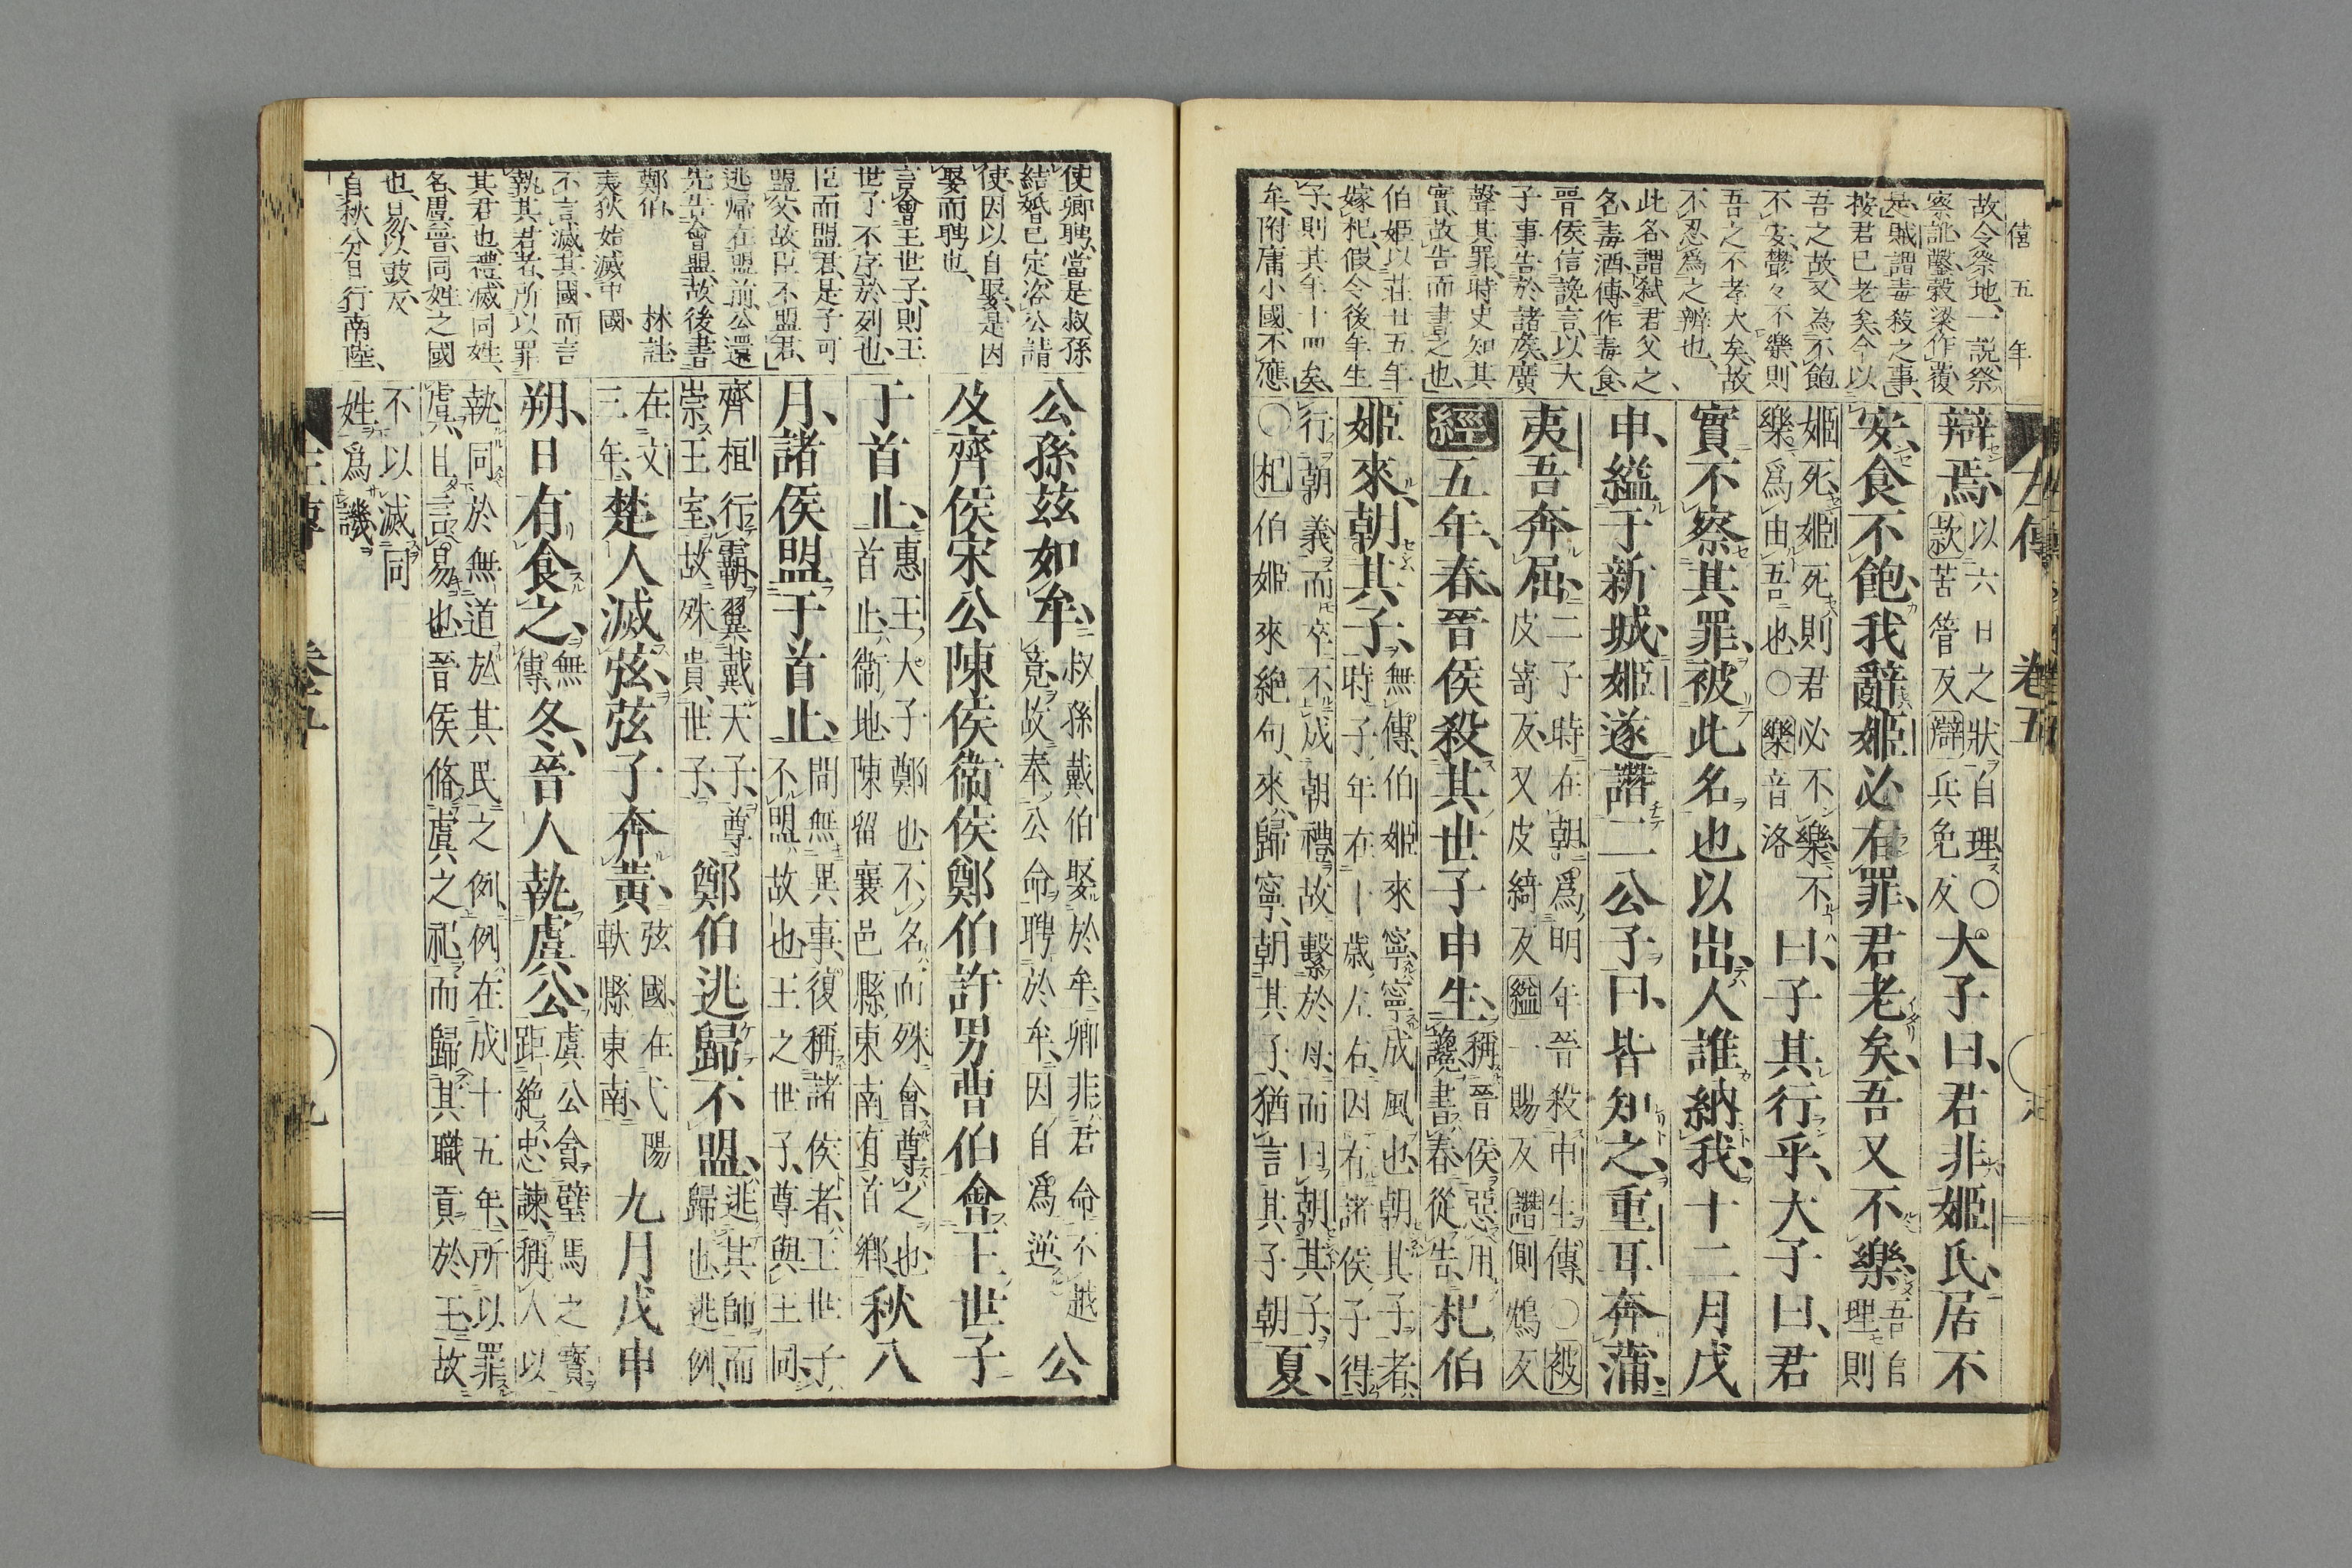 僖五年
故令祭地、一說、祭
察訛鑿穀梁作覆
是賊謂毒殺之事、
按君已老矣、今以
吾之故、又為不飽
不安、鬱々不樂、則
吾之不孝大矣、故
不忍爲之辨也、
此名謂弑君父之
名、毒酒、傳作毒食、
晋侯信讒言、以大
子事告於諸侯、廣
聲其罪、時史知其
實、故告而書之也、
伯姬以莊廿五年
嫁杞、假令後年生
子、則其年十四矣、
牟附庸小國、不應
左傳 卷五
辯焉、以六日之狀自理○款苦管反辯兵免反大子曰、君非姬氏、居不
安、食不飽、我辭、姬必有罪、君老矣、吾又不樂、吾自理則
姬死、姬死則君必不樂、不樂爲由吾也○樂音洛曰、子其行乎、大子曰、君
實不察其罪、被此名也以出、人誰納我、十二月戊
申、縊于新城、姬遂譖二公子曰、皆知之、重耳奔蒲、
夷吾奔屈、二子時在朝、爲明年晉殺申生傳、○被皮寄反、又皮綺反縊一賜反譖側鴆反
經五年、春、晉侯殺其世子申生、稱晉侯、惡用讒、書春、從告、杞伯
姬來、朝其子、無傳、伯姬來寧、寧成風也、朝其子者、時子年在十歲左右、因有諸侯子得
行朝義、而卒不成朝禮、故繫於母、而曰朝其子、○杞伯姬來絕句、來、歸寧、朝其子、猶言其子朝夏、
使卿聘、當是叔孫
結婚已定、洛公請
使因以自娶、是因
娶而聘也、
言會王世子、則王
世子不序於列也、
臣而盟君、是子可
盟父、故臣不盟君、
逃歸在盟前、公還
先告會盟、故後書
鄭伯、
林註、夷狄始滅中國、
不言滅其國、而言
執其君者、所以罪
其君也、禮、滅同姓、
名、虞晉、同姓之國
也、易以豉反、
自秋分日行南陸、
公孫茲如牟、叔孫戴伯娶於牟、卿非君命不越竟、故奉公命聘於牟、因自爲逆、公
及齊侯宋公陳侯衞侯鄭伯許男曹伯會王世子
于首止、惠王大子鄭也、不名而殊會、尊之也、首止、衞地、陳留襄邑縣東南有首鄉、秋八
月、諸侯盟于首止、間無異事、復稱諸侯者、王世子不盟故也、王之世子、尊與王同、
齊桓行霸、翼戴天子、尊崇王室、故殊貴世子、鄭伯逃歸不盟、逃其師而歸也、逃例、
在文三年、楚人滅弦、弦子奔黃、弦國、在弋陽軑縣東南、九月戊申
朔、日有食之、無傳、冬、晉人執虞公、虞公貪璧馬之寶、距絕忠諫、稱人以
執、同於無道於其民之例、例在成十五年、所以罪虞、且言易也、晉侯脩虞之祀、而歸其職貢於王、故
不以滅同姓爲譏、